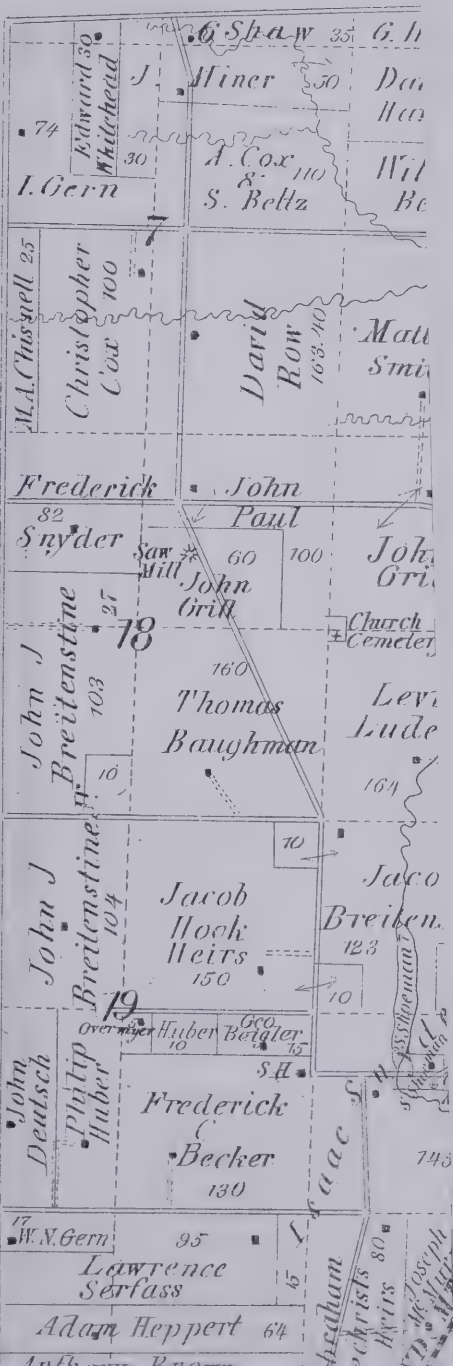 G Shaw 35
G. H
Edward 30
Whitehead
J. Miner 50
74
30
A. Cox
& 110
S. Beltz
I. Gern
7
M.A. Chisnell 25
Christopher
Cox
100
David
Row
163.40
Matt
Smi
Frederick
82
Snyder
John
Paul
100
Saw
Mill
60
John
Grill
Joh
Gri
27
18
Church
Cemeter
John J
Breitenstine
103
10
160
Thomas
Baughman
Levi
Lude
164
John J
Breitenstine
104
10
Jacob
Hook
Heirs
150
Jaco
Breiten
123
10
19
Overmyer
Huber
10
Geo
Beigler
15
S.H
John
Deutsch
Philip
Huber
Frederick
C
Becker
130
Isaac
S. Shoeman
145
17
W. N. Gern
95
Lawrence
Serfass
15
Adam Heppert 64
braham
christs
Heirs 80
Joseph